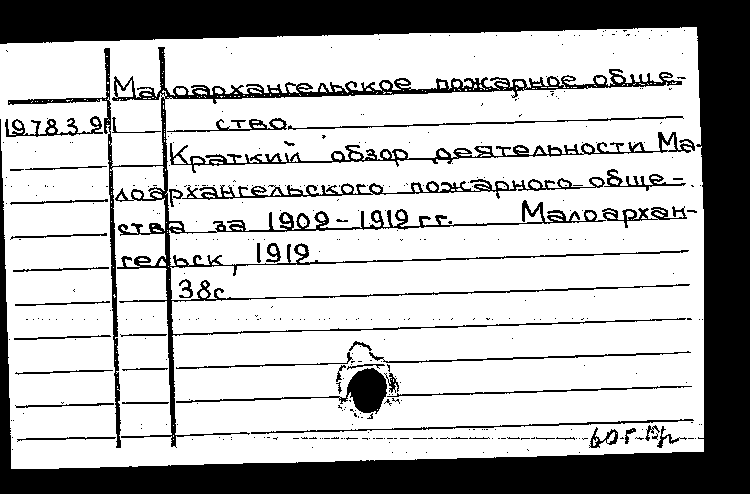 Малоархангельское пожарное обще-
1978.3.911 ство.
Краткий обзор деятельности Ма-
лоархангельского пожарного обще-
ства за 1909-1919 гг. Малоархан-
гельск, 1919.
38с.